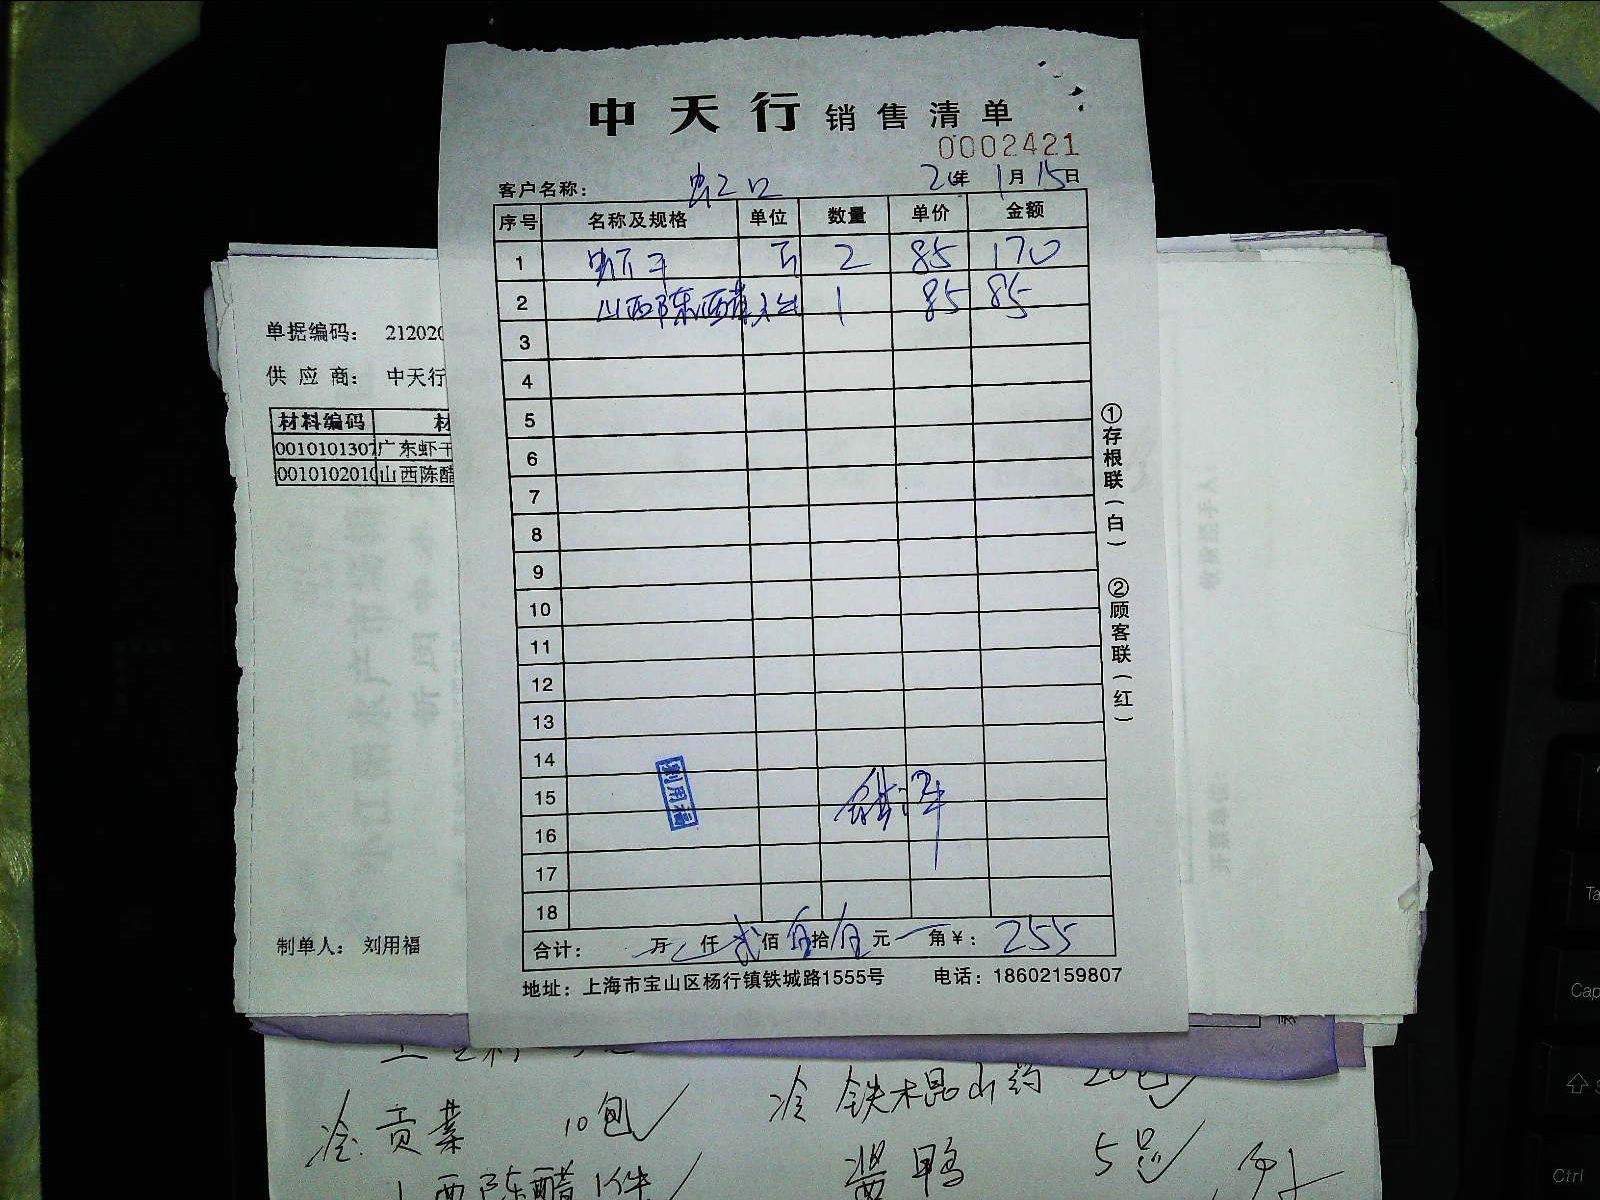 中天行 销售清单
0002421
客户名称： 虹口 20年 1月 15日
序号 名称及规格 单位 数量 单价 金额
1 虾干 斤 2 85 170
2 山西陈醋 1 85 85
3
4
5
6
7
8
9
10
11
12
13
14
15
16
17
18
刘用福
合计： 万 仟 贰佰 伍拾 伍元 角 ¥： 255
地址：上海市宝山区杨行镇铁城路1555号 电话：18602159807
①存根联（白） ②顾客联（红）
单据编码： 212020
供应商： 中天行
材料编码 材
0010101307 广东虾干
0010102010 山西陈醋
制单人： 刘用福
冷 贡菜 10包
冷 铁木昆山药 20包
西陈醋 1件
酱鸭 5
Ta
Cap
Ctrl